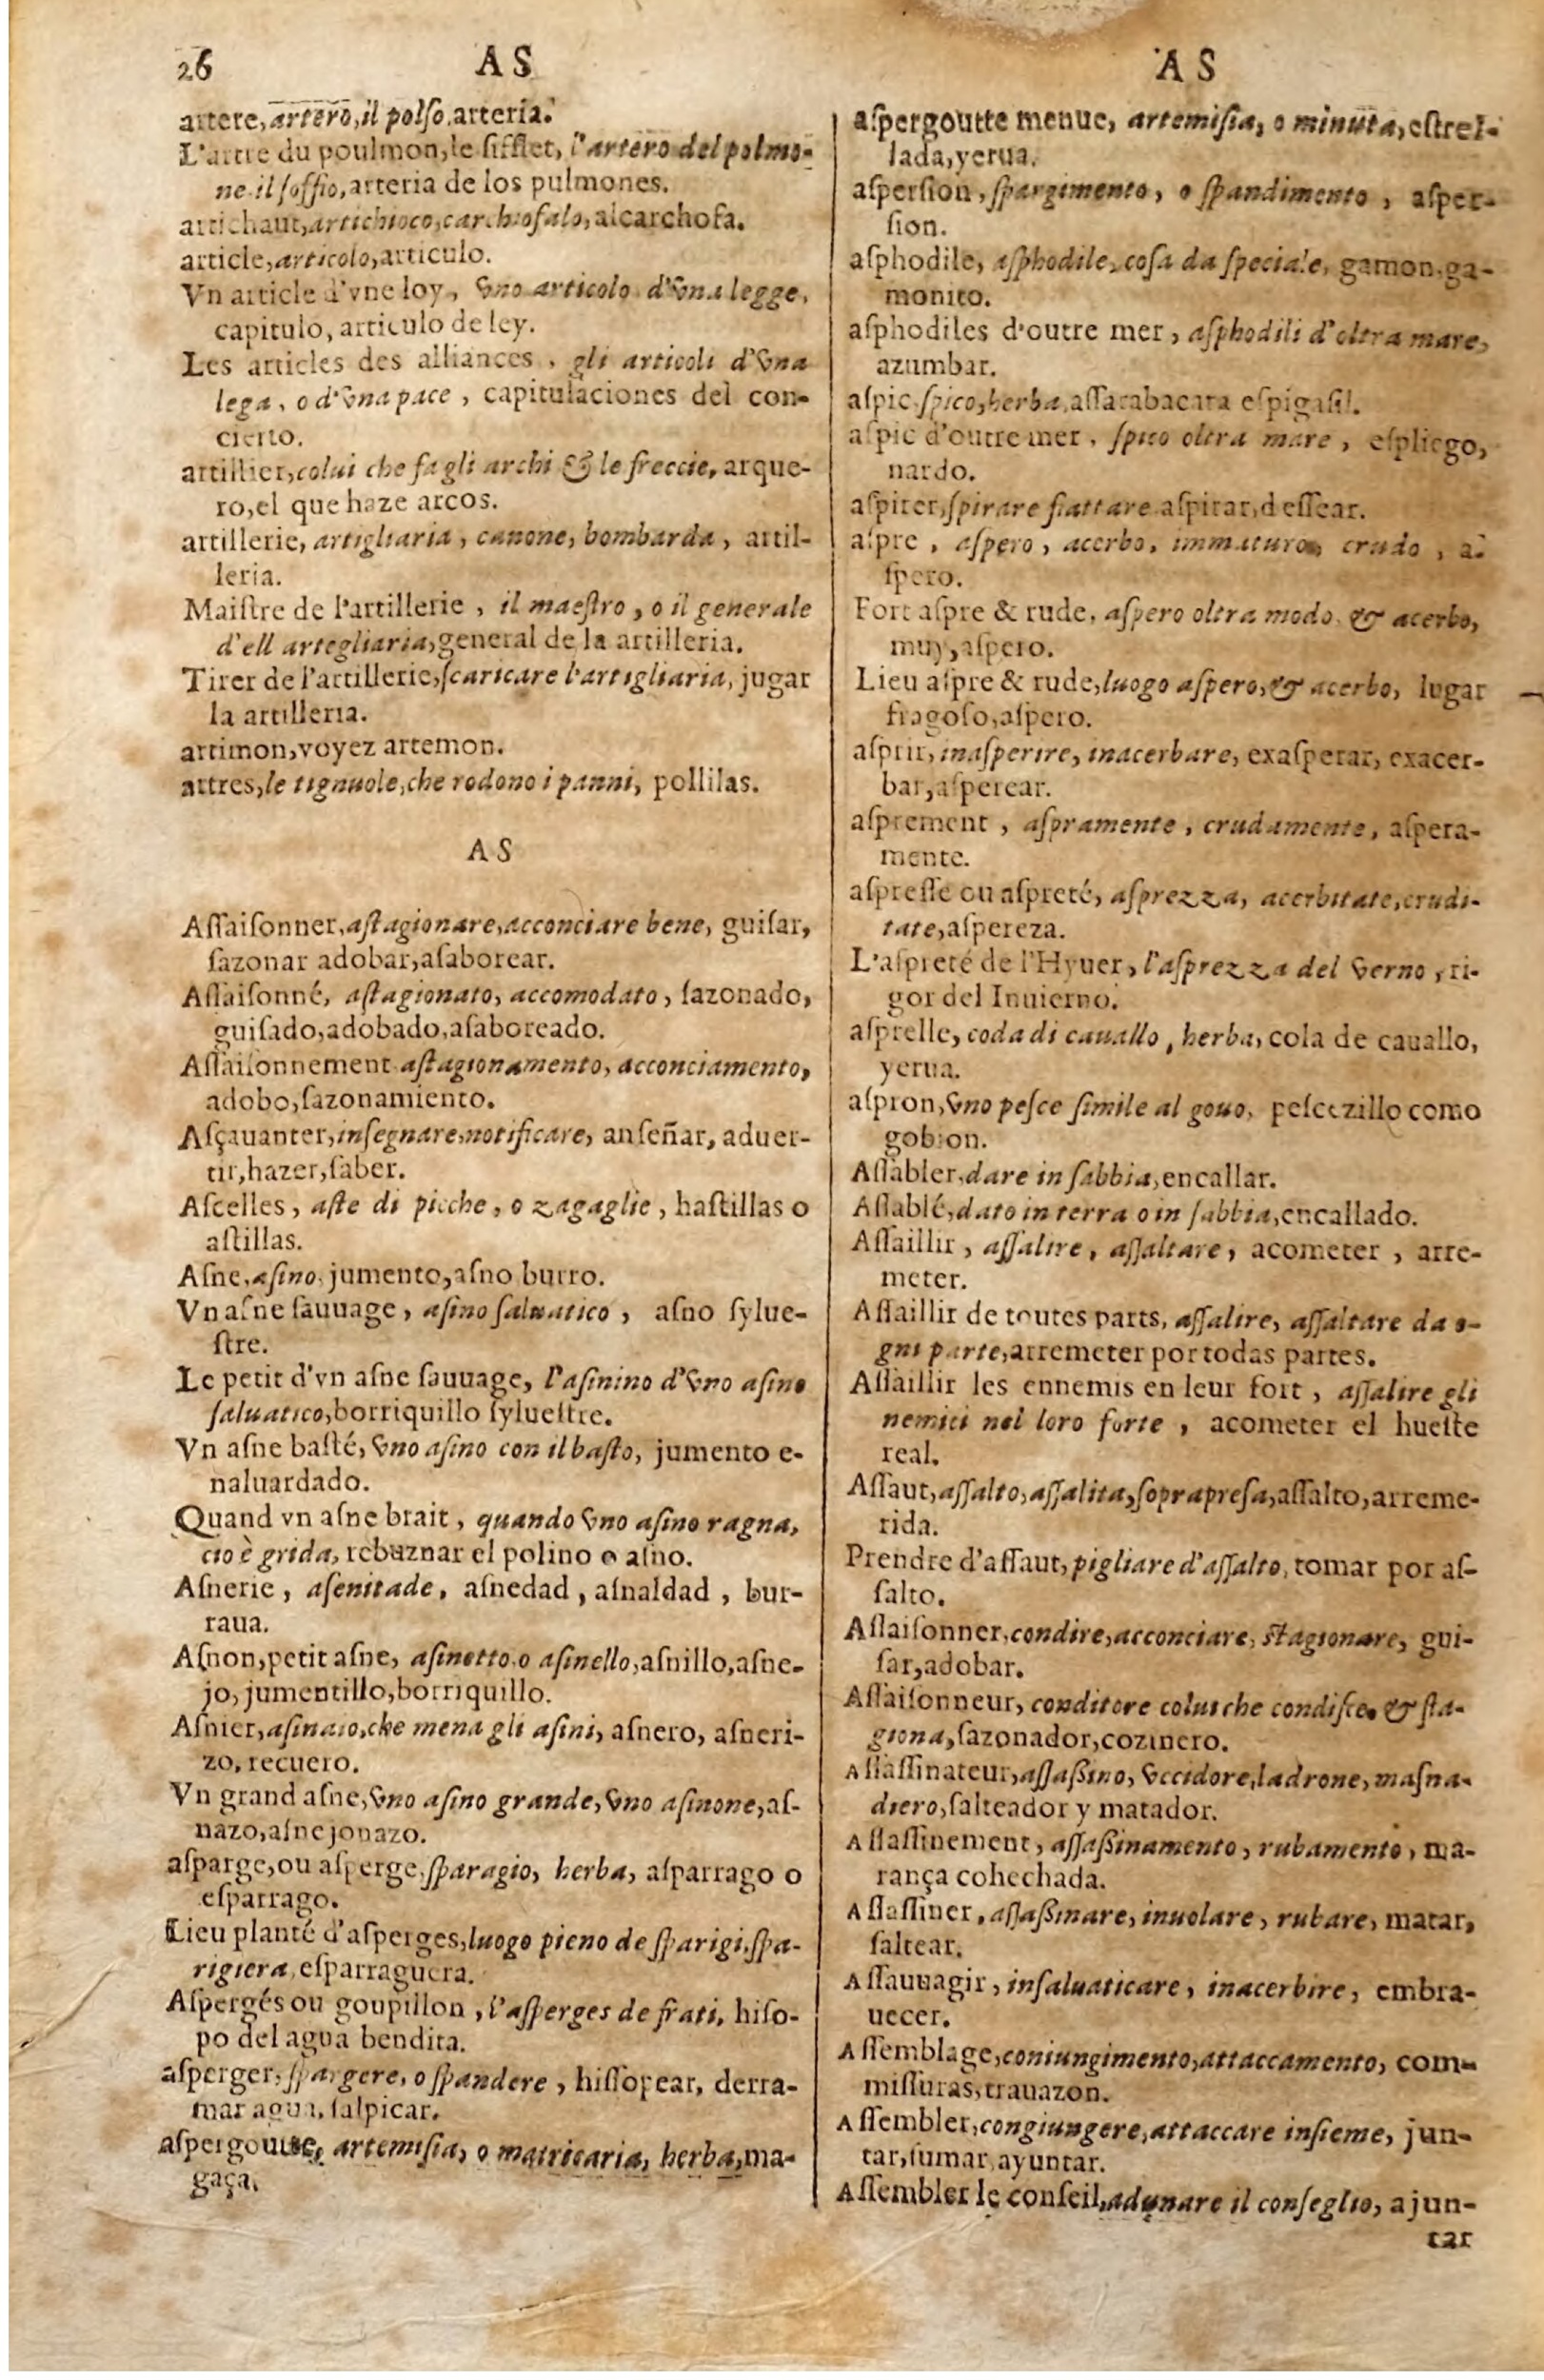 26 AS AS
artere, artero, il polſo, arteria.
L'artre du poulmon, le ſifflet, l'artero del polmo-
ne il ſoffio, arteria de los pulmones.
artichaut, artichioco, carchiofalo, alcarchofa.
article, articolo, articulo.
Vn article d'vne loy, vno articolo d'vna legge,
capitulo, articulo de ley.
Les articles des alliances, gli articoli d'vna
lega, o d'vna pace, capitulaciones del con-
cierto.
artillier, colui che fa gli archi & le freccie, arque-
ro, el que haze arcos.
artillerie, artigliaria, canone, bombarda, artil-
leria.
Maiſtre de l'artillerie, il maeſtro, o il generale
d'ell artegliaria, general de la artilleria.
Tirer de l'artillerie, ſcaricare l'artigliaria, jugar
la artilleria.
artimon, voyez artemon.
artres, le tignuole, che rodono i panni, pollilas.
AS
Aſſaiſonner, aſtagionare, acconciare bene, guiſar,
ſazonar adobar, aſaborear.
Aſſaiſonné, aſtagionato, accomodato, ſazonado,
guiſado, adobado, aſaboreado.
Aſſaiſonnement aſtagionamento, acconciamento,
adobo, ſazonamiento.
Aſçauanter, inſegnare, notificare, anſeñar, aduer-
tir, hazer, ſaber.
Aſcelles, aſte di picche, o zagaglie, haſtillas o
aſtillas.
Aſne, aſino, jumento, aſno burro.
Vn aſne ſauuage, aſino ſaluatico, aſno ſylue-
ſtre.
Le petit d'vn aſne ſauuage, l'aſinino d'vno aſino
ſaluatico, borriquillo ſylueſtre.
Vn aſne baſté, vno aſino con il baſto, jumento e-
naluardado.
Quand vn aſne brait, quando vno aſino ragna,
cio è grida, rebuznar el polino o aſno.
Aſnerie, aſenitade, aſnedad, aſnaldad, bur-
raua.
Aſnon, petit aſne, aſinetto o aſinello, aſnillo, aſne-
jo, jumentillo, borriquillo.
Aſnier, aſinaio, che mena gli aſini, aſnero, aſneri-
zo, recuero.
Vn grand aſne, vno aſino grande, vno aſinone, aſ-
nazo, aſnejonazo.
aſparge, ou aſperge, ſparagio, herba, aſparrago o
eſparrago.
Lieu planté d'aſperges, luogo pieno de ſparigi, ſpa-
rigiera, eſparraguera.
Aſpergés ou goupillon, l'aſperges de frati, hiſo-
po del agua bendita.
aſperger, ſpargere, o ſpandere, hiſſopear, derra-
mar agua, ſalpicar.
aſpergoutte, artemiſia, o matricaria, herba, ma-
gaça.
aſpergoutte menue, artemiſia, o minuta, eſtrel-
lada, yerua.
aſperſion, ſpargimento, o ſpandimento, aſper-
ſion.
aſphodile, aſphodile, coſa da ſpeciale, gamon, ga-
monito.
aſphodiles d'outre mer, aſphodili d'oltra mare,
azumbar.
aſpic, ſpico, herba, aſſarabacara eſpigaſil.
aſpic d'outre mer, ſpico oltra mare, eſpliego,
nardo.
aſpirer, ſpirare fiattare aſpirar, deſſear.
aſpre, aſpero, acerbo, immaturo, crudo, a-
ſpero.
Fort aſpre & rude, aſpero oltra modo, & acerbo,
muy, aſpero.
Lieu aſpre & rude, luogo aſpero, & acerbo, lugar
fragoſo, aſpero.
aſprir, inaſperire, inacerbare, exaſperar, exacer-
bar, aſperear.
aſprement, aſpramente, crudamente, aſpera-
mente.
aſpreſſe ou aſpreté, aſprezza, acerbitate, crudi-
tate, aſpereza.
L'aſpreté de l'Hyuer, l'aſprezza del verno, ri-
gor del Inuierno.
aſprelle, coda di cauallo, herba, cola de cauallo,
yerua.
aſpron, vno peſce ſimile al gouo, peſcezillo como
gobion.
Aſſabler, dare in ſabbia, encallar.
Aſſablé, dato in terra o in ſabbia, encallado.
Aſſaillir, aſſalire, aſſaltare, acometer, arre-
meter.
Aſſaillir de toutes parts, aſſalire, aſſaltare da o-
gni parte, arremeter por todas partes.
Aſſaillir les ennemis en leur fort, aſſalire gli
nemici nel loro forte, acometer el hueſte
real.
Aſſaut, aſſalto, aſſalita, ſoprapreſa, aſſalto, arreme-
rida.
Prendre d'aſſaut, pigliare d'aſſalto, tomar por aſ-
ſalto.
Aſſaiſonner, condire, acconciare, ſtagionare, gui-
ſar, adobar.
Aſſaiſonneur, conditore colui che condiſce, & ſta-
giona, ſazonador, cozinero.
Aſſaſſinateur, aſſaßino, vccidore, ladrone, maſna-
diero, ſalteador y matador.
Aſſaſſinement, aſſaßinamento, rubamento, ma-
rança cohechada.
Aſſaſſiner, aſſaßinare, inuolare, rubare, matar,
ſaltear.
Aſſauuagir, inſaluaticare, inacerbire, embra-
uecer.
Aſſemblage, coniungimento, attaccamento, com-
miſſuras, trauazon.
Aſſembler, congiungere, attaccare inſieme, jun-
tar, ſumar, ayuntar.
Aſſembler le conſeil, adunare il conſeglio, ajun-
tar